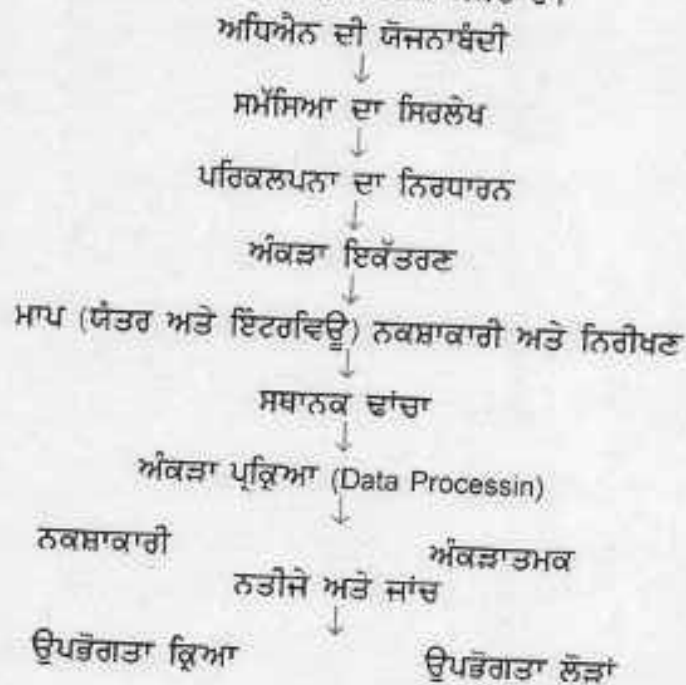 ਅਧਿਐਨ ਦੀ ਯੋਜਨਾਬੰਦੀ
↓
ਸਮੱਸਿਆ ਦਾ ਸਿਰਲੇਖ
↓
ਪਰਿਕਲਪਨਾ ਦਾ ਨਿਰਧਾਰਨ
↓
ਅੰਕੜਾ ਇਕੱਤਰਣ
↓
ਮਾਪ (ਯੰਤਰ ਅਤੇ ਇੰਟਰਵਿਊ) ਨਕਸ਼ਾਕਾਰੀ ਅਤੇ ਨਿਰੀਖਣ
↓
ਸਥਾਨਕ ਢਾਂਚਾ
↓
ਅੰਕੜਾ ਪ੍ਰਕ੍ਰਿਆ (Data Processin)
↓
ਨਕਸ਼ਾਕਾਰੀ ਅੰਕੜਾਤਮਕ
ਨਤੀਜੇ ਅਤੇ ਜਾਂਚ
↓
ਉਪਭੋਗਤਾ ਕ੍ਰਿਆ ਉਪਭੋਗਤਾ ਲੋੜਾਂ